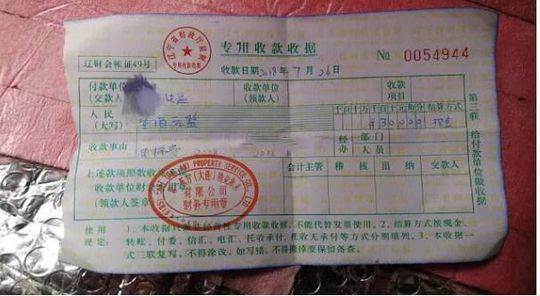 辽财会帐证49号
专用收款收据
№ 0054944
收款日期2018年7月26日
付款单位
(交款人)
收款单位
(领款人)
收款
项目
人民
(大写)
叁佰元整
千百十万千百十元角分
结算方式
¥30000
现金
收款事由
经办
部门
人员
上述款项照数收
收款单位财会
(领款人签章)
会计主管
稽核
出纳
交款人
PROPERTY SERVICE CO., LTD
(大连)物业服务
有限公司
财务专用章
第三联 给付款单位做收据
使用规定:
1、本收据只
专用收款收据,不能代替发票使用。2、结算方式按现金、
转账、付委、信汇、电汇、托收承付、托收无承付等方式分别填列。3、本收据一
式三联复写,不得涂改,如写错,不得撕掉要保留备查。